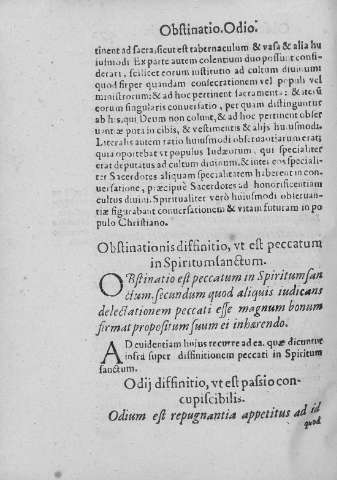 Obstinatio. Odio.
tinent ad sacra, sicut est tabernaculum & vasa & alia hu
iusmodi Ex parte autem colentium duo possunt consi-
derari, scilicet eorum institutio ad cultum diuinum
quod fit per quandam consecrationem vel populi vel
ministrorum: & ad hoc pertinent sacramenta: & iterū
eorum singularis conuersatio, per quam distinguntur
ab his, qui Deum non colunt, & ad hoc pertinent obser
uantiæ puta in cibis, & vestimentis & alijs huiusmodi.
Literalis autem ratio huiusmodi obseruantiarum erat;
quia oportebat vt populus Iudæorum, qui specialiter
erat deputatus ad cultum diuinum, & inter eos speciali-
ter Sacerdotes aliquam specialitatem haberent in con-
uersatione, præcipuè Sacerdotes ad honorificentiam
cultus diuini. Spiritualiter verò huiusmodi obseruan-
tiæ figurabant conuersationem & vitam futuram in po
pulo Christiano.
Obstinationis diffinitio, vt est peccatum
in Spiritum sanctum.
OBstinatio est peccatum in Spiritum san
ctum. secundum quod aliquis iudicans
delectationem peccati esse magnum bonum
firmat propositum suum ei inhærendo.
AD euidentiam huius recurre ad ea. quæ dicuntur
infra super diffinitionem peccati in Spiritum
sanctum.
Odij diffinitio, vt est passio con-
cupiscibilis.
Odium est repugnantia appetitus ad id
quod